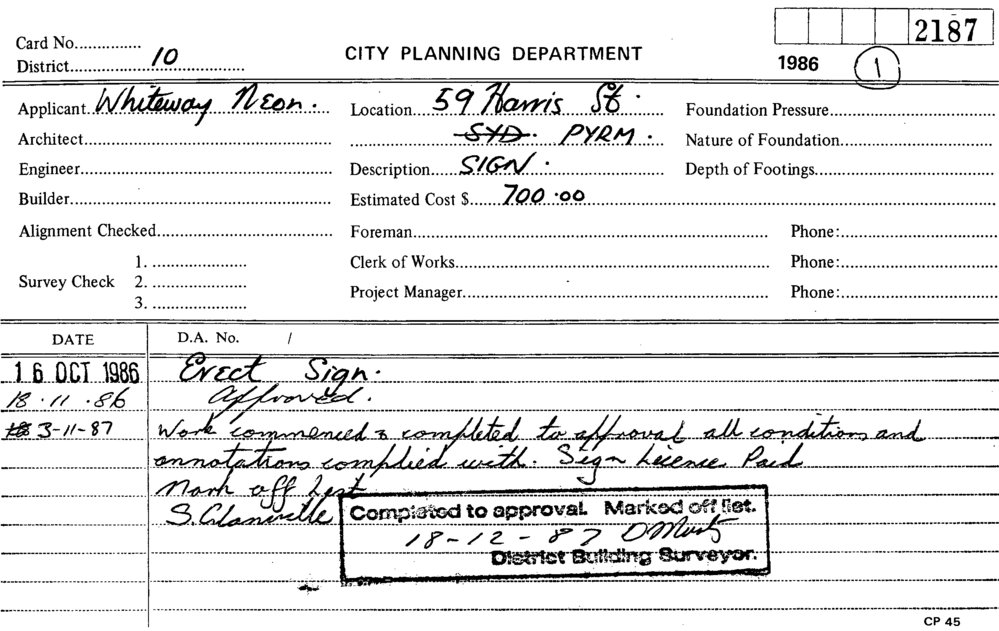 2187
Card No...............
District.......10.......
CITY PLANNING DEPARTMENT
1986 1
Applicant. Whiteway Neon.
Location....59 Harris St.
Foundation Pressure
Architect
SYD. PYRM.
Nature of Foundation
Engineer
Description.....SIGN.
Depth of Footings
Builder
Estimated Cost $......700.00
Alignment Checked
Foreman
Phone:
Survey Check
1.
2.
3.
Clerk of Works
Phone:
Project Manager
Phone:
DATE
D.A. No. /
16 OCT 1986 Erect Sign.
18.11.86 Approved.
3-11-87 Work commenced & completed to approval all conditions and
annotations complied with. Sign License Paid
Mark off List
S. Glanville
Completed to approval. Marked off list.
18-12-87
District Building Surveyor.
CP 45